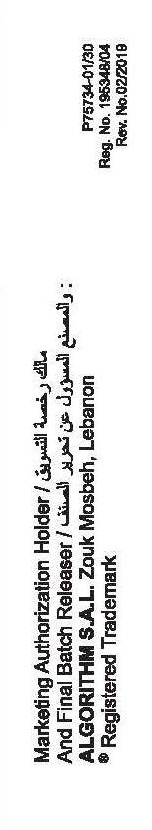 Marketing Authorization Holder / مالك رخصة التسويق
And Final Batch Releaser / والمصنع المسؤول عن تحرير الصنف :
ALGORITHM S.A.L. Zouk Mosbeh, Lebanon
® Registered Trademark
P75734-01/30
Reg. No. 195348/04
Rev. No.02/2019